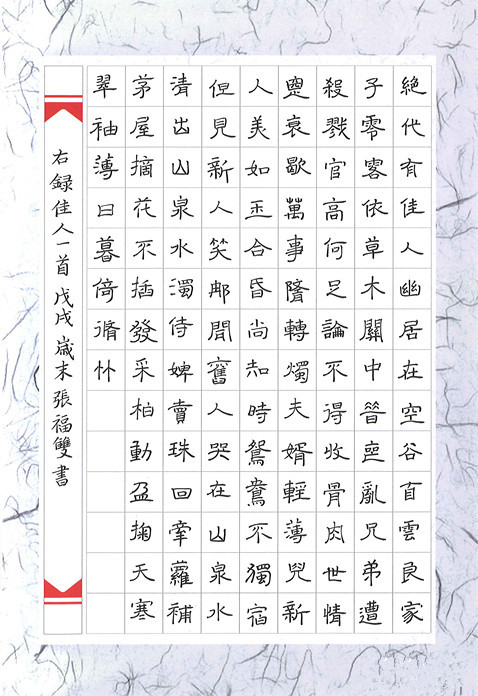 絶代有佳人幽居在空谷自雲良家
子零落依草木關中昔喪亂兄弟遭
殺戮官高何足論不得收骨肉世情
惡衰歇萬事隨轉燭夫婿輕薄兒新
人美如玉合昏尚知時鴛鴦不獨宿
但見新人笑那聞舊人哭在山泉水
清出山泉水濁侍婢賣珠回牽蘿補
茅屋摘花不插發采柏動盈掬天寒
翠袖薄日暮倚脩竹
右録佳人一首 戊戌歲末張福雙書